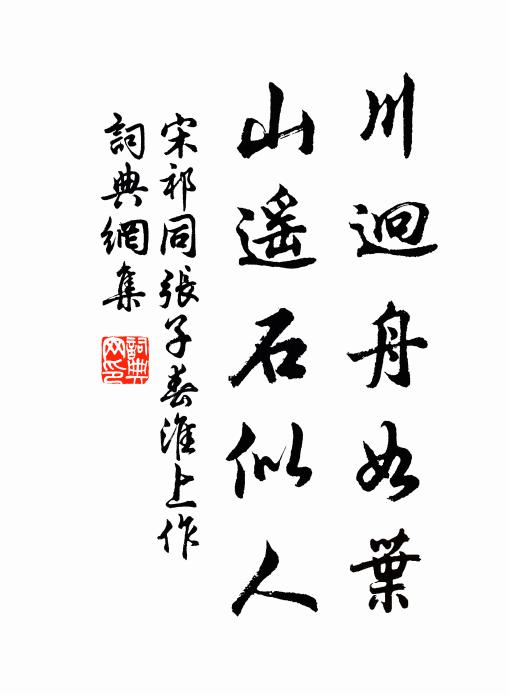 川迥舟如葉
山遥石似人
宋祁同張子春淮上作
詞典網集
詞典网印